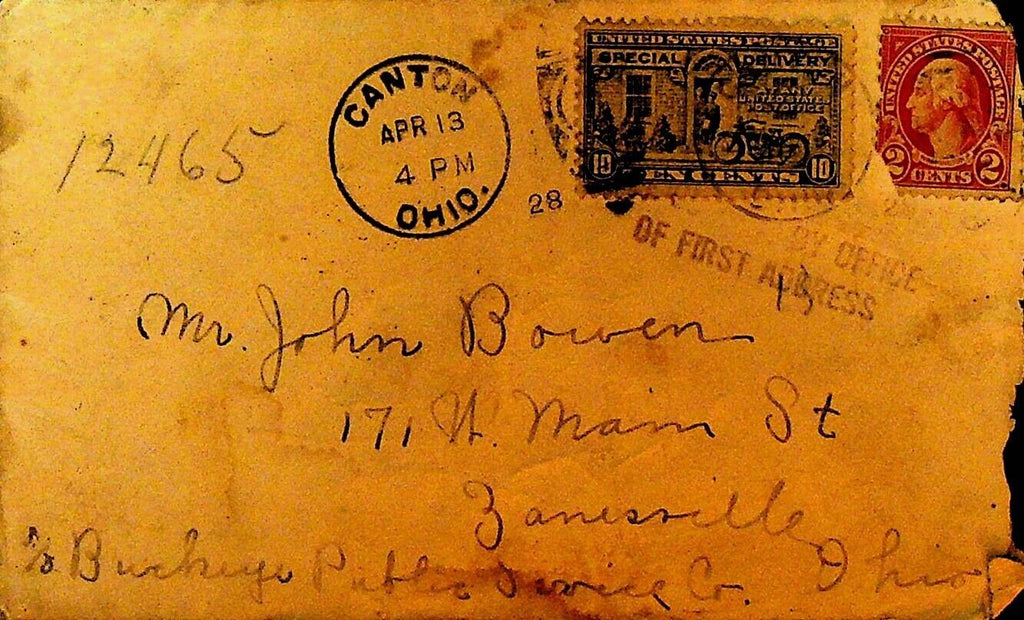 12465
CANTON
APR 13
4 PM
OHIO.
28
UNITED STATES POSTAGE
SPECIAL DELIVERY
AT ANY
UNITED STATES
POST OFFICE
10 10
TEN CENTS
UNITED STATES POSTAGE
2 2
CENTS
BY OFFICE
OF FIRST ADDRESS
Mr. John Bowen
171 W. Main St
Zanesville
Ohio
c/o Buckeye Public Service Co.